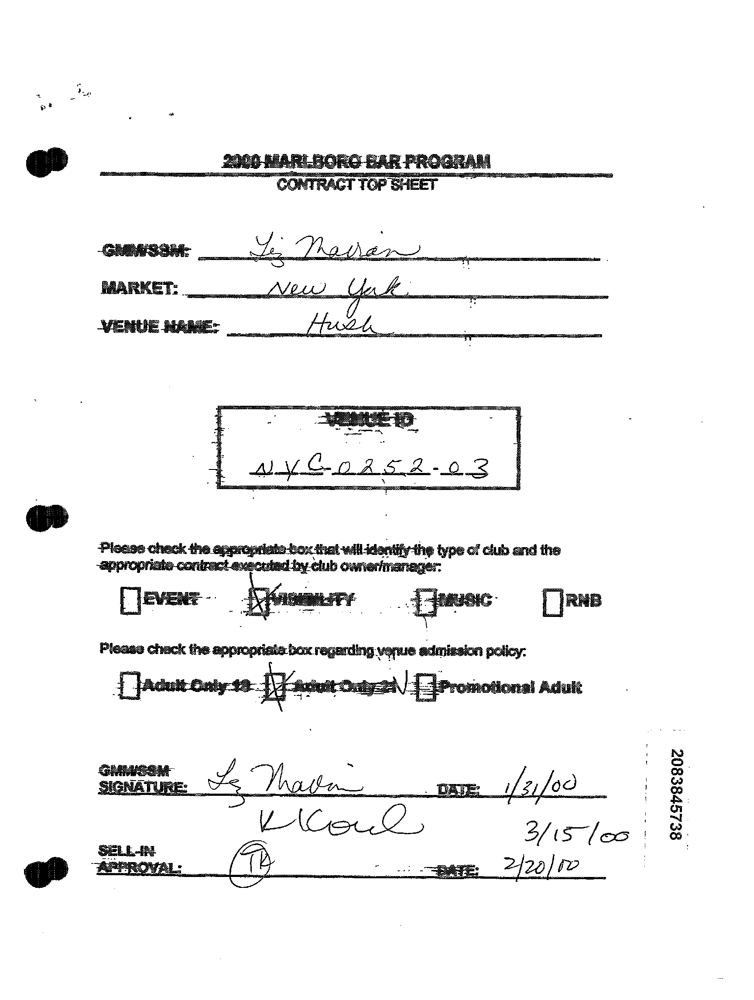 2000 MARLBORO BAR PROGRAM
CONTRACT TOP SHEET
GMM/SSM: Liz
MARKET: New York
VENUE NAME: Hush
VENUE ID
NYC-0252-03
Please check the appropriate box that will identify the type of club and the
appropriate contract executed by club owner/manager:
EVENT VISIBILITY MUSIC RNB
Please check the appropriate box regarding venue admission policy:
Adult Only 18 Adult Only 21 Promotional Adult
GMM/SSM
SIGNATURE: DATE: 1/31/00
3/15/00
SELL-IN
APPROVAL: TA DATE: 2/20/00
2083845738